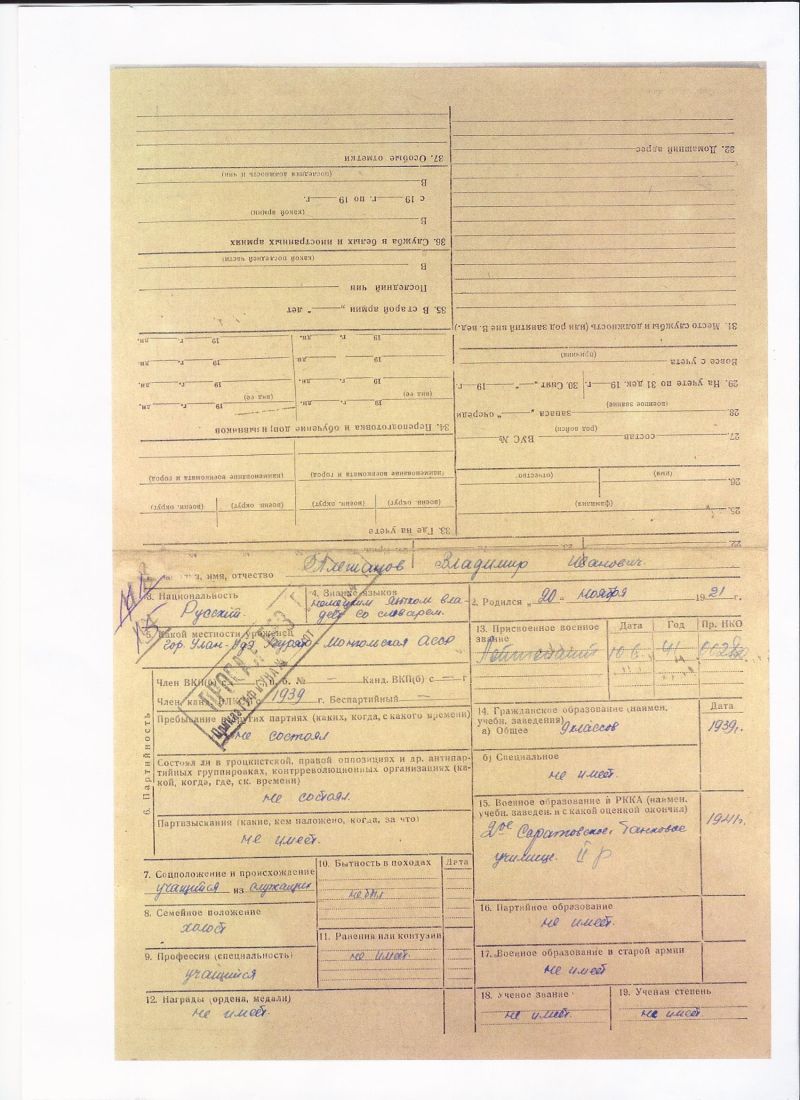 37. Особые отметки
(последняя должность и чин)
В
с 19 г. по 19 г.
(какой армии)
В
36. Служба в белых и иностранных армиях
(какой последней части)
В
Последний чин
35. В старой армии „ " лет
19 г. дн. 19 г. дн.
19 г. дн. 19 г. дн.
19 г. дн. 19 г. дн.
(вид ее) (вид ее)
19 г. дн. 19 г. дн.
34. Переподготовка и обучение
(наименование военкомата и город) (наименование военкомата и город)
(военн. округ) (военн. округ) (военн. округ) (военн. округ)
33. Где на учете
32. Домашний адрес
31. Место службы и должность (или род занятий вне В. вед.)
(причина)
Вовсе с учета
29. На учете по 31 дек. 19 г. 30. Снят „ " 19 г
(военное звание)
28. запаса „ " очереди
(род войск)
27. состав ВУС №
(имя) (отчество)
26.
(фамилия)
25.
22.
имя, отчество Владимир Иванович.
3. Национальность
Русский.
4. Знание языков
немецким языком вла-
деет со словарем.
2. Родился „20" ноября 1921 г.
5. Какой местности уроженец
гор. Улан-Удэ, Бурято-Монгольская АССР
13. Присвоенное военное звание Дата Год Пр. НКО
10.6. 41
6. Партийность
Член ВКП(б) с п. б. № — Канд. ВКП(б) с — г
Член, канд. ВЛКСМ 1939 г. Беспартийный —
Пребывание в других партиях (каких, когда, с какого времени)
не состоял
Состоял ли в троцкистской, правой оппозициях и др. антипар-
тийных группировках, контрреволюционных организациях (ка-
кой, когда, где, ск. времени)
не состоял.
Партвзыскания (какие, кем наложено, когда, за что)
не имеет.
14. Гражданское образование (наимен. Дата
учебн. заведения)
а) Общее 9 классов 1939г.
б) Специальное
не имеет.
15. Военное образование в РККА (наимен.
учебн. заведен. и с какой оценкой окончил)
2ое Саратовское Танковое 1941г.
училище. II р
7. Соцположение и происхождение
учащийся из служащих
8. Семейное положение
холост
9. Профессия (специальность)
учащийся
10. Бытность в походах Дата
не был
11. Ранения или контузии
не имеет.
12. Награды (ордена, медали)
не имеет.
16. Партийное образование
не имеет.
17. Военное образование в старой армии
не имеет
18. Ученое звание
не имеет.
19. Ученая степень
не имеет.